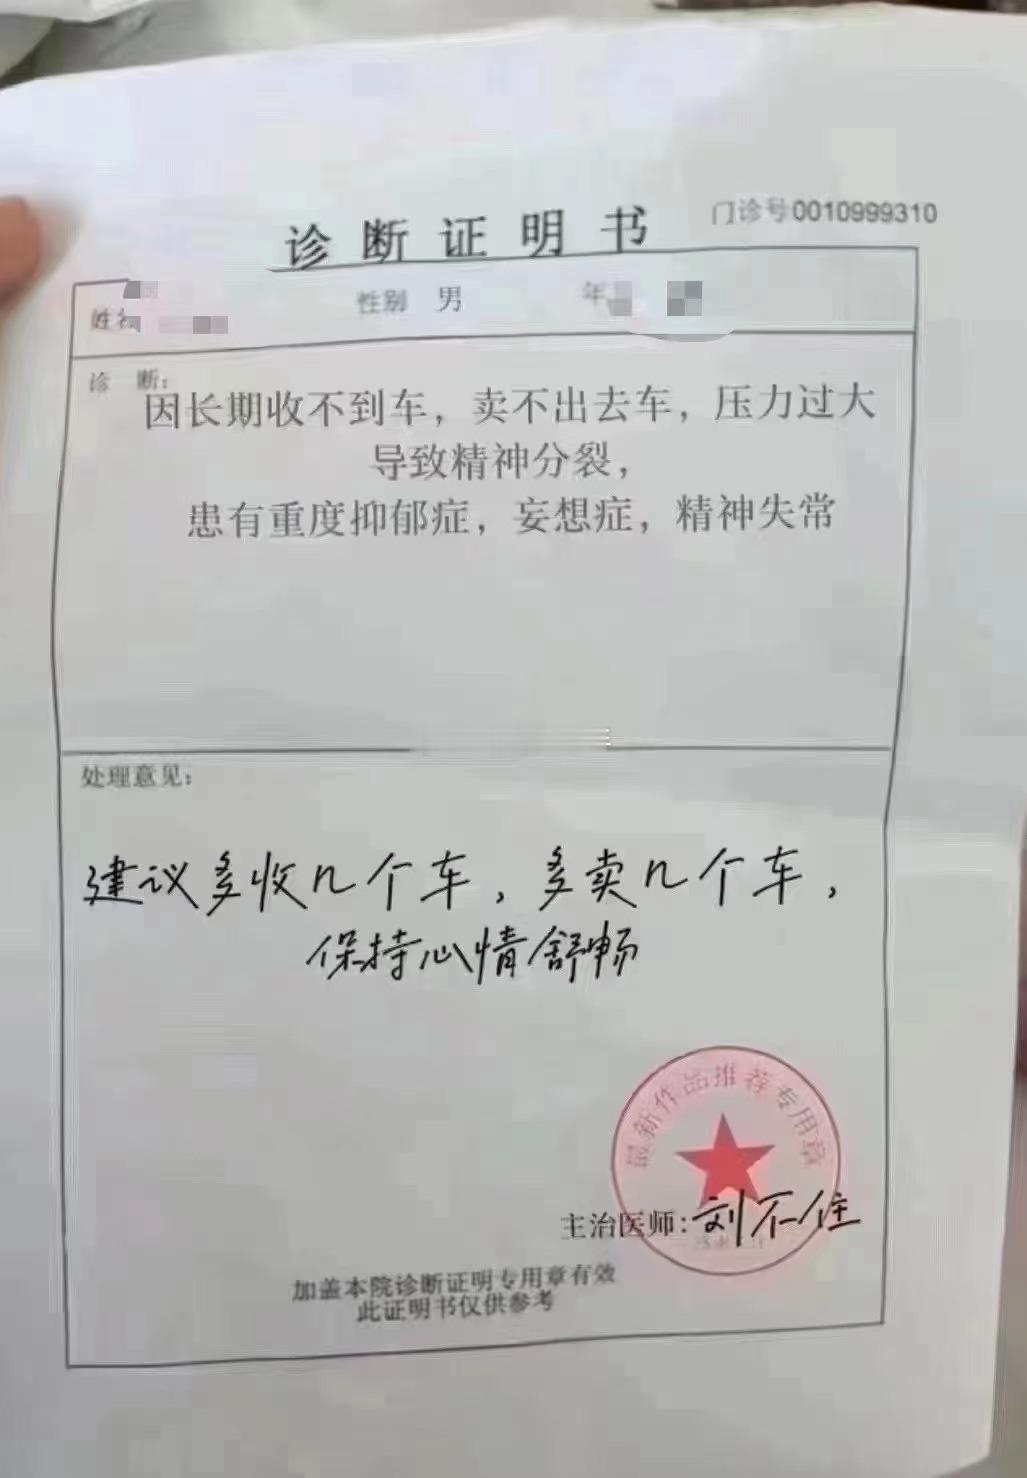 诊断证明书
门诊号0010999310
性别 男
诊 断：
因长期收不到车，卖不出去车，压力过大
导致精神分裂，
患有重度抑郁症，妄想症，精神失常
处理意见：
建议多收几个车，多卖几个车，
保持心情舒畅
最新作品推荐专用章
主治医师：刘不住
加盖本院诊断证明专用章有效
此证明书仅供参考